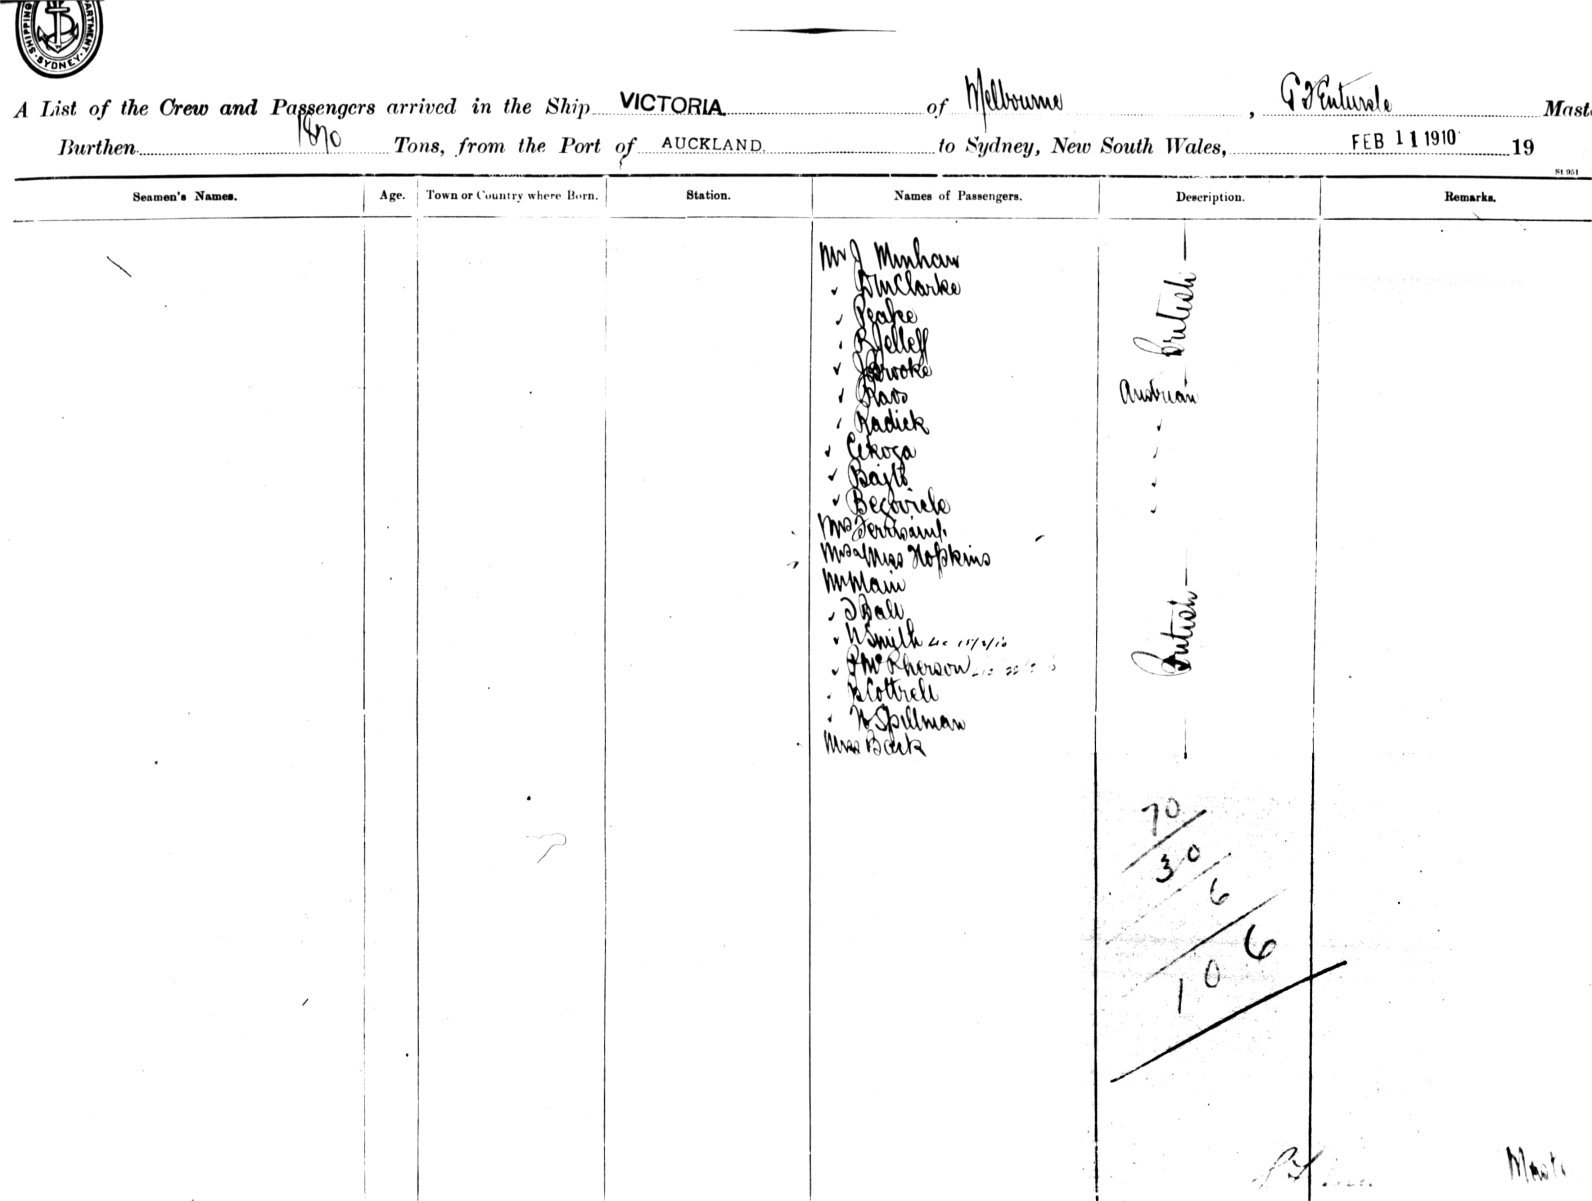 SHIPPING DEPARTMENT SYDNEY
A List of the Crew and Passengers arrived in the Ship VICTORIA of Melbourne, Mast
Burthen Tons, from the Port of AUCKLAND to Sydney, New South Wales, FEB 11 1910 19
St 951
Seamen's Names. Age. Town or Country where Born. Station. Names of Passengers. Description. Remarks.
Mr J
Clarke
Peake
R Jelleff
J Brooke
Ravo Austrian
Radick
Cekoga
Begovich
Mrs
Mrs & Miss Hopkins
Mr Main
Ball
Smith
McPherson
Cottrell
Spillman
Miss
British
British
70
30
6
106